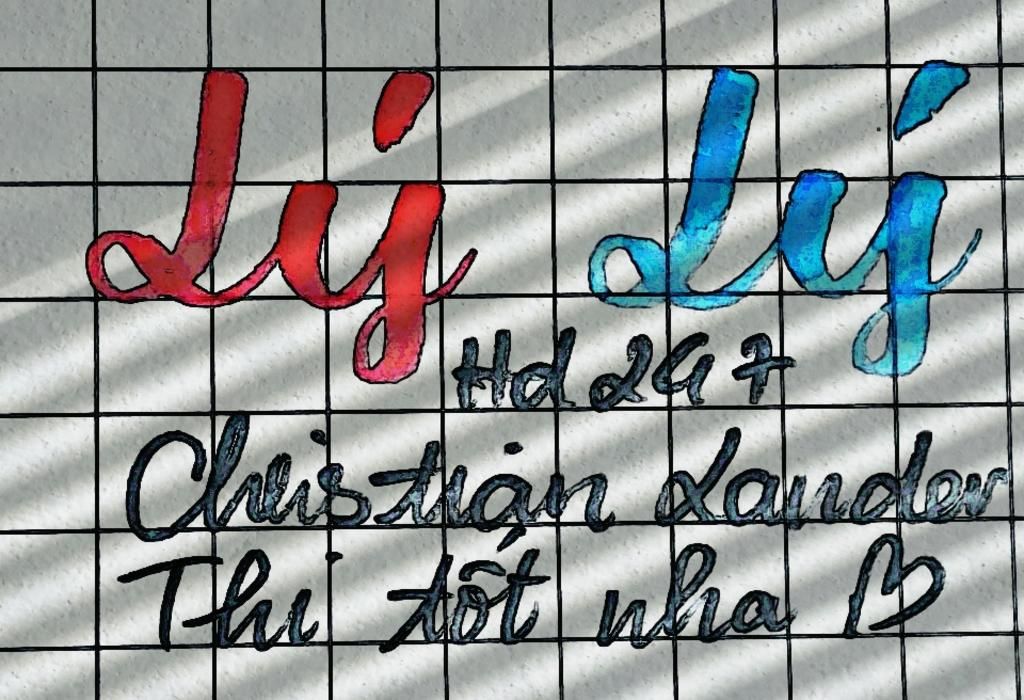 Lý Lý
Hd 247
Christian Lander
Thi tốt nha